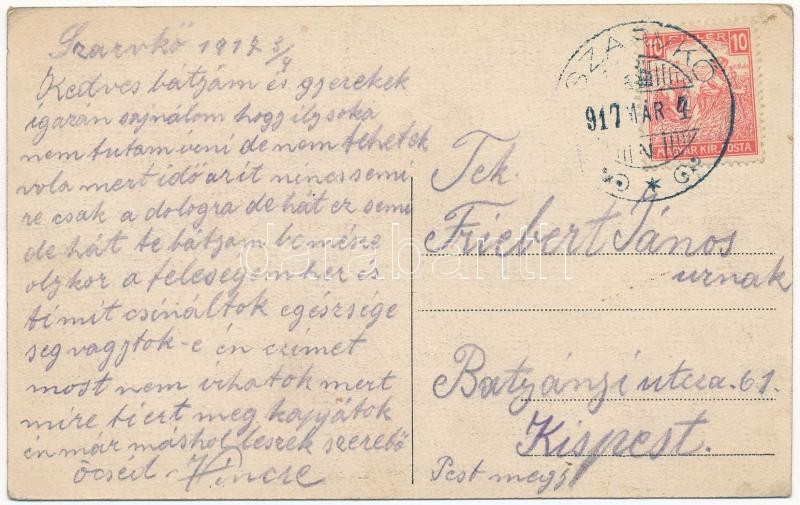 Szarvkő 1917 3/4
Kedves bátyám és gyerekek
igazán sajnálom hogy ily soka
nem tutam iveni de nem tehetek
vola mert idő arit nincs semi
re csak a dologra de hát ez semi
de hát te bátyam bemész e
olykor a feleségemher és
ti mit csináltok egészsége
seg vagytok-e én czimet
most nem irhatok mert
mire ti ezt meg kapjátok
én már máshol leszek szerető
öcséd Vincze
SZARVKŐ
917 MÁR 4
10 FILLÉR 10
MAGYAR KIR. POSTA
Tek.
Friebert János
urnak
Batyányi utcza. 61.
Kispest.
Pest megye
darabanth